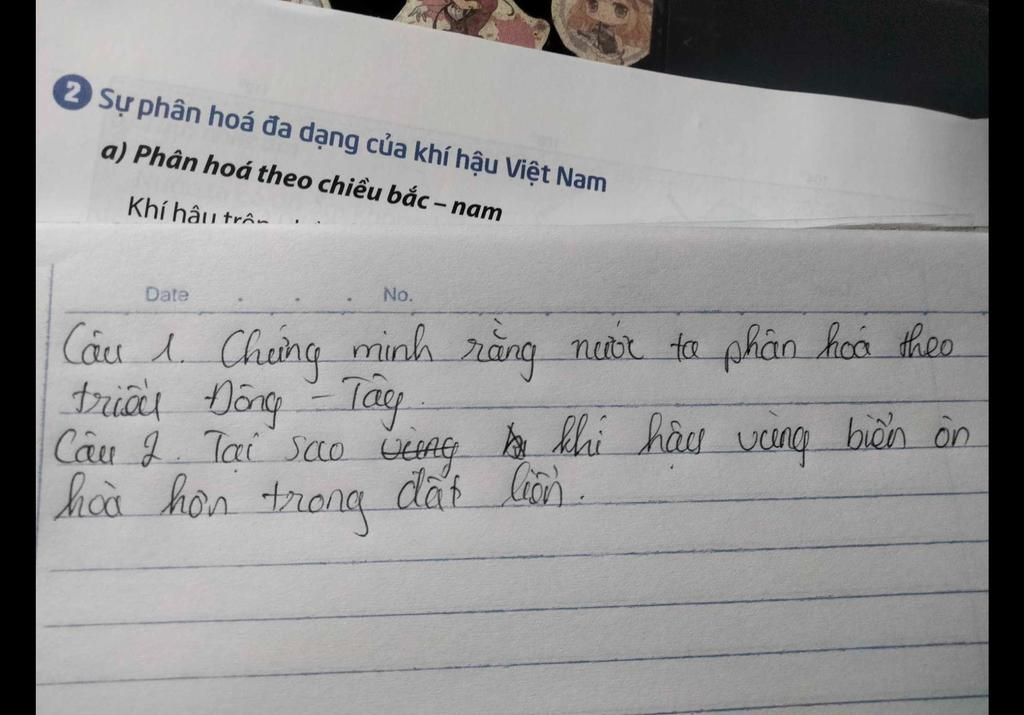 2 Sự phân hoá đa dạng của khí hậu Việt Nam
a) Phân hoá theo chiều bắc – nam
Khí hậu trên
Date . . . No.
Câu 1. Chứng minh rằng nước ta phân hoá theo
triều Đông - Tây.
Câu 2. Tại sao vùng khí hậu vùng biển ôn
hoà hơn trong đất liền.